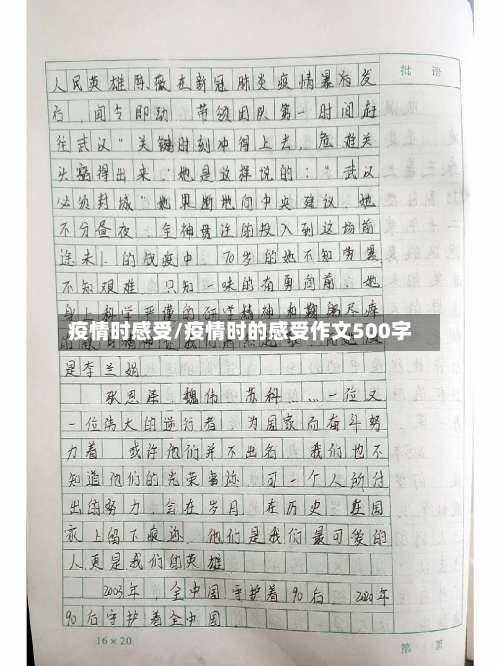 批 语
人民英雄陈薇在新冠肺炎疫情暴发
后,闻令即动,带领团队第一时间赶
往武汉"关键时刻冲得上去,危难关
头豁得出来。"她是这样说的:"武汉
必须封城"她果断地向中央建议。她
不分昼夜,全神贯注的投入到这场前
途未卜的战疫中。70岁的她不知劳累
不知艰难,只知一味的奋勇向前。她
身上科学严谨的
疫情时感受/疫情时的感受作文500字
是李兰娟
耿恩泽 魏伟 苏科……一位又
一位伟大的逆行者,为国家而奋斗努
力着 或许他们并不出名 我们也不
知道他们的光荣事迹 可一个人所付
出的努力 会在岁月 在历史 在国
家上留下痕迹。他们是我们最可爱的
人,更是我们的英雄
2003年,全中国守护着90后,2020年
90后守护着全中国
16×20
第 页